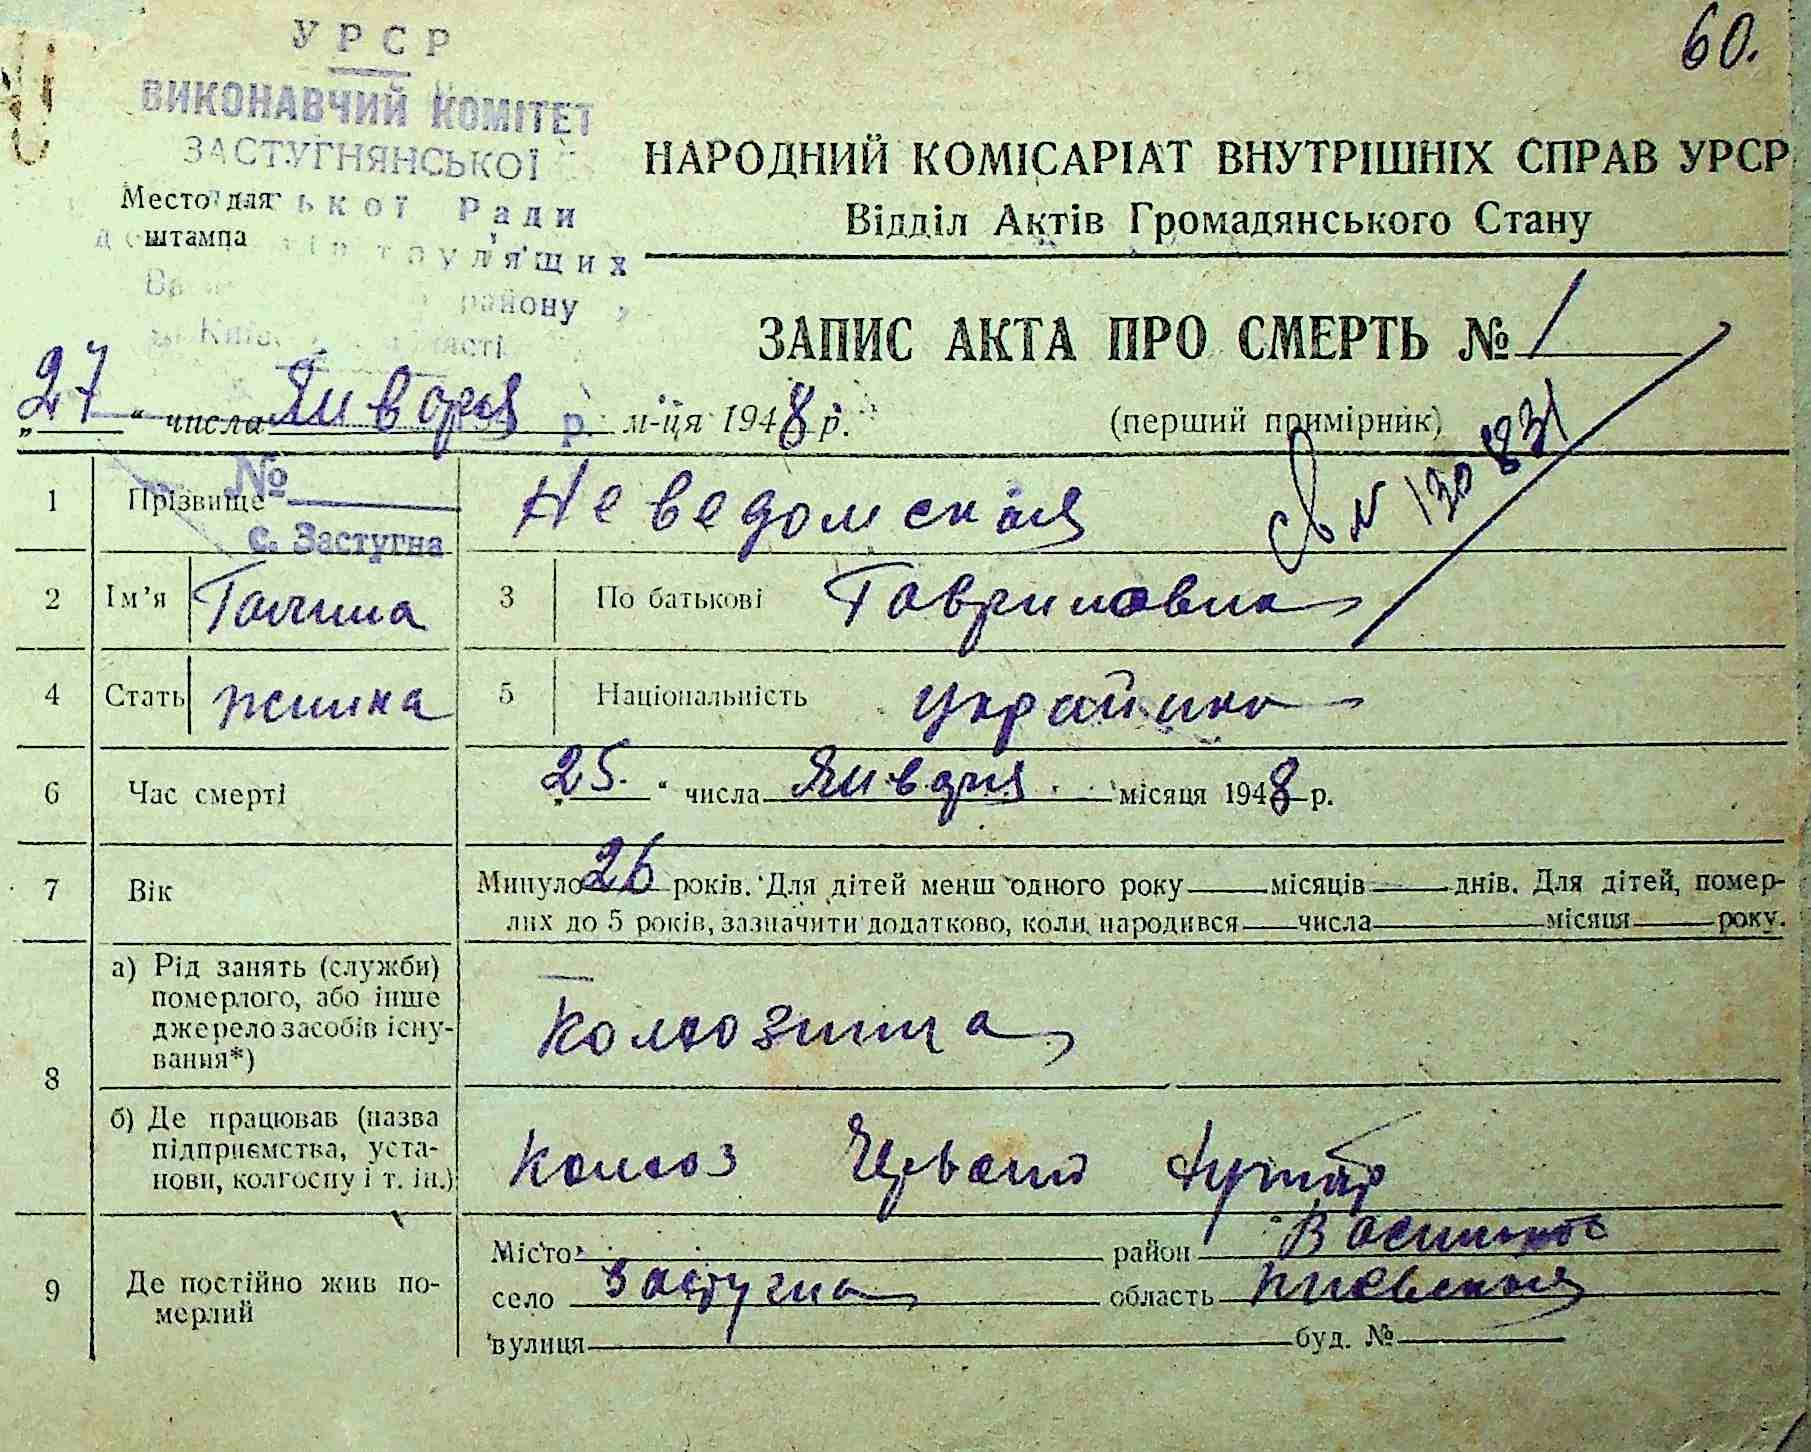 60.
УРСР
ВИКОНАВЧИЙ КОМІТЕТ
ЗАСТУГНЯНСЬКОЇ
ької Ради
трудящих
району
Місто для
штампа
НАРОДНИЙ КОМІСАРІАТ ВНУТРІШНІХ СПРАВ УРСР
Відділ Актів Громадянського Стану
ЗАПИС АКТА ПРО СМЕРТЬ № 1
„27“ числа Января м-ця 1948 р. (перший примірник)
св № 130831
№
с. Застугна
1 Прізвище Неведомская
2 Ім’я Галина 3 По батькові Гавриловна
4 Стать жинка 5 Національність украйинка
6 Час смерті „25.“ числа Января місяця 1948 р.
7 Вік Минуло 26 років. Для дітей менш одного року місяців днів. Для дітей, помер-
лих до 5 років, зазначити додатково, коли народився числа місяця року.
8 а) Рід занять (служби) померлого, або інше джерело засобів існу-вання*) Колхозница
б) Де працював (назва підприємства, уста-нови, колгоспу і т. ін.) Колхоз
9 Де постійно жив по-мерлий
Місто район Васильков
село Застугна область Киевская
вулиця буд. №